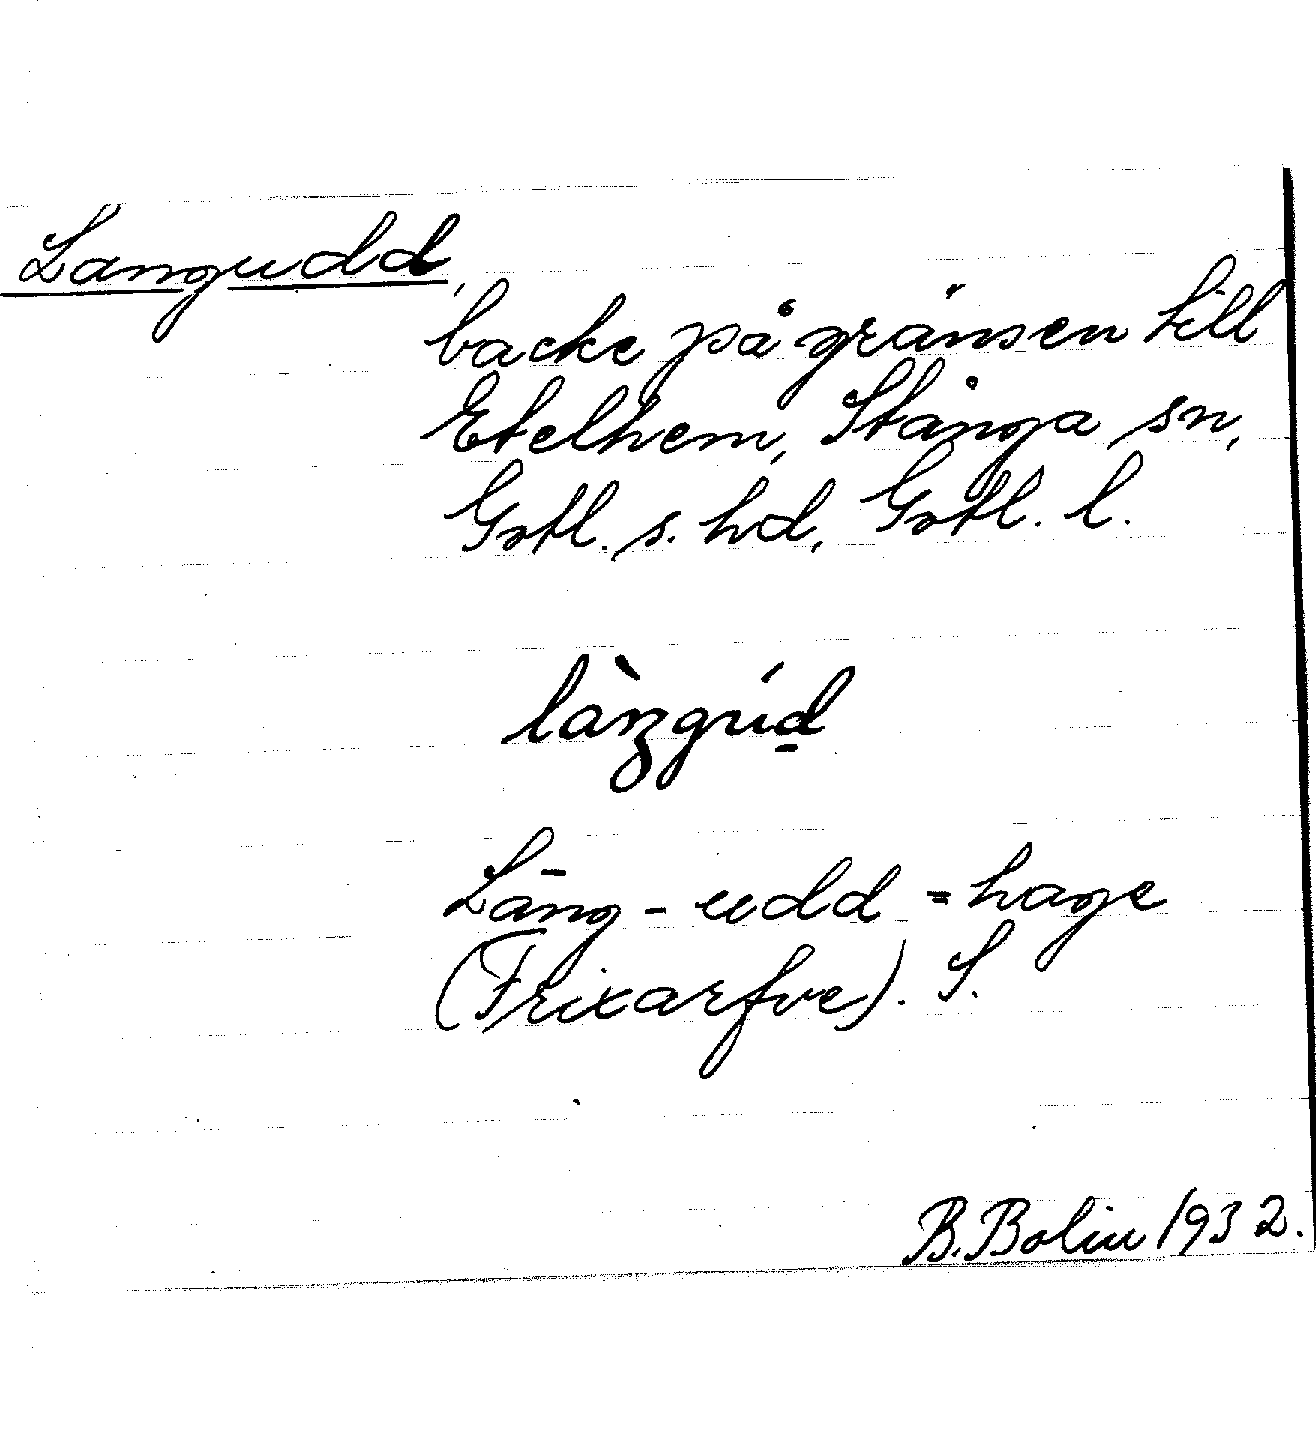 Langudd,
backe på gränsen till
Etelhem, Stånga sn,
Gotl. s. hd, Gotl. l.
Lāng-udd = hage
(Frixarfve). S.
B. Bolin 1932.